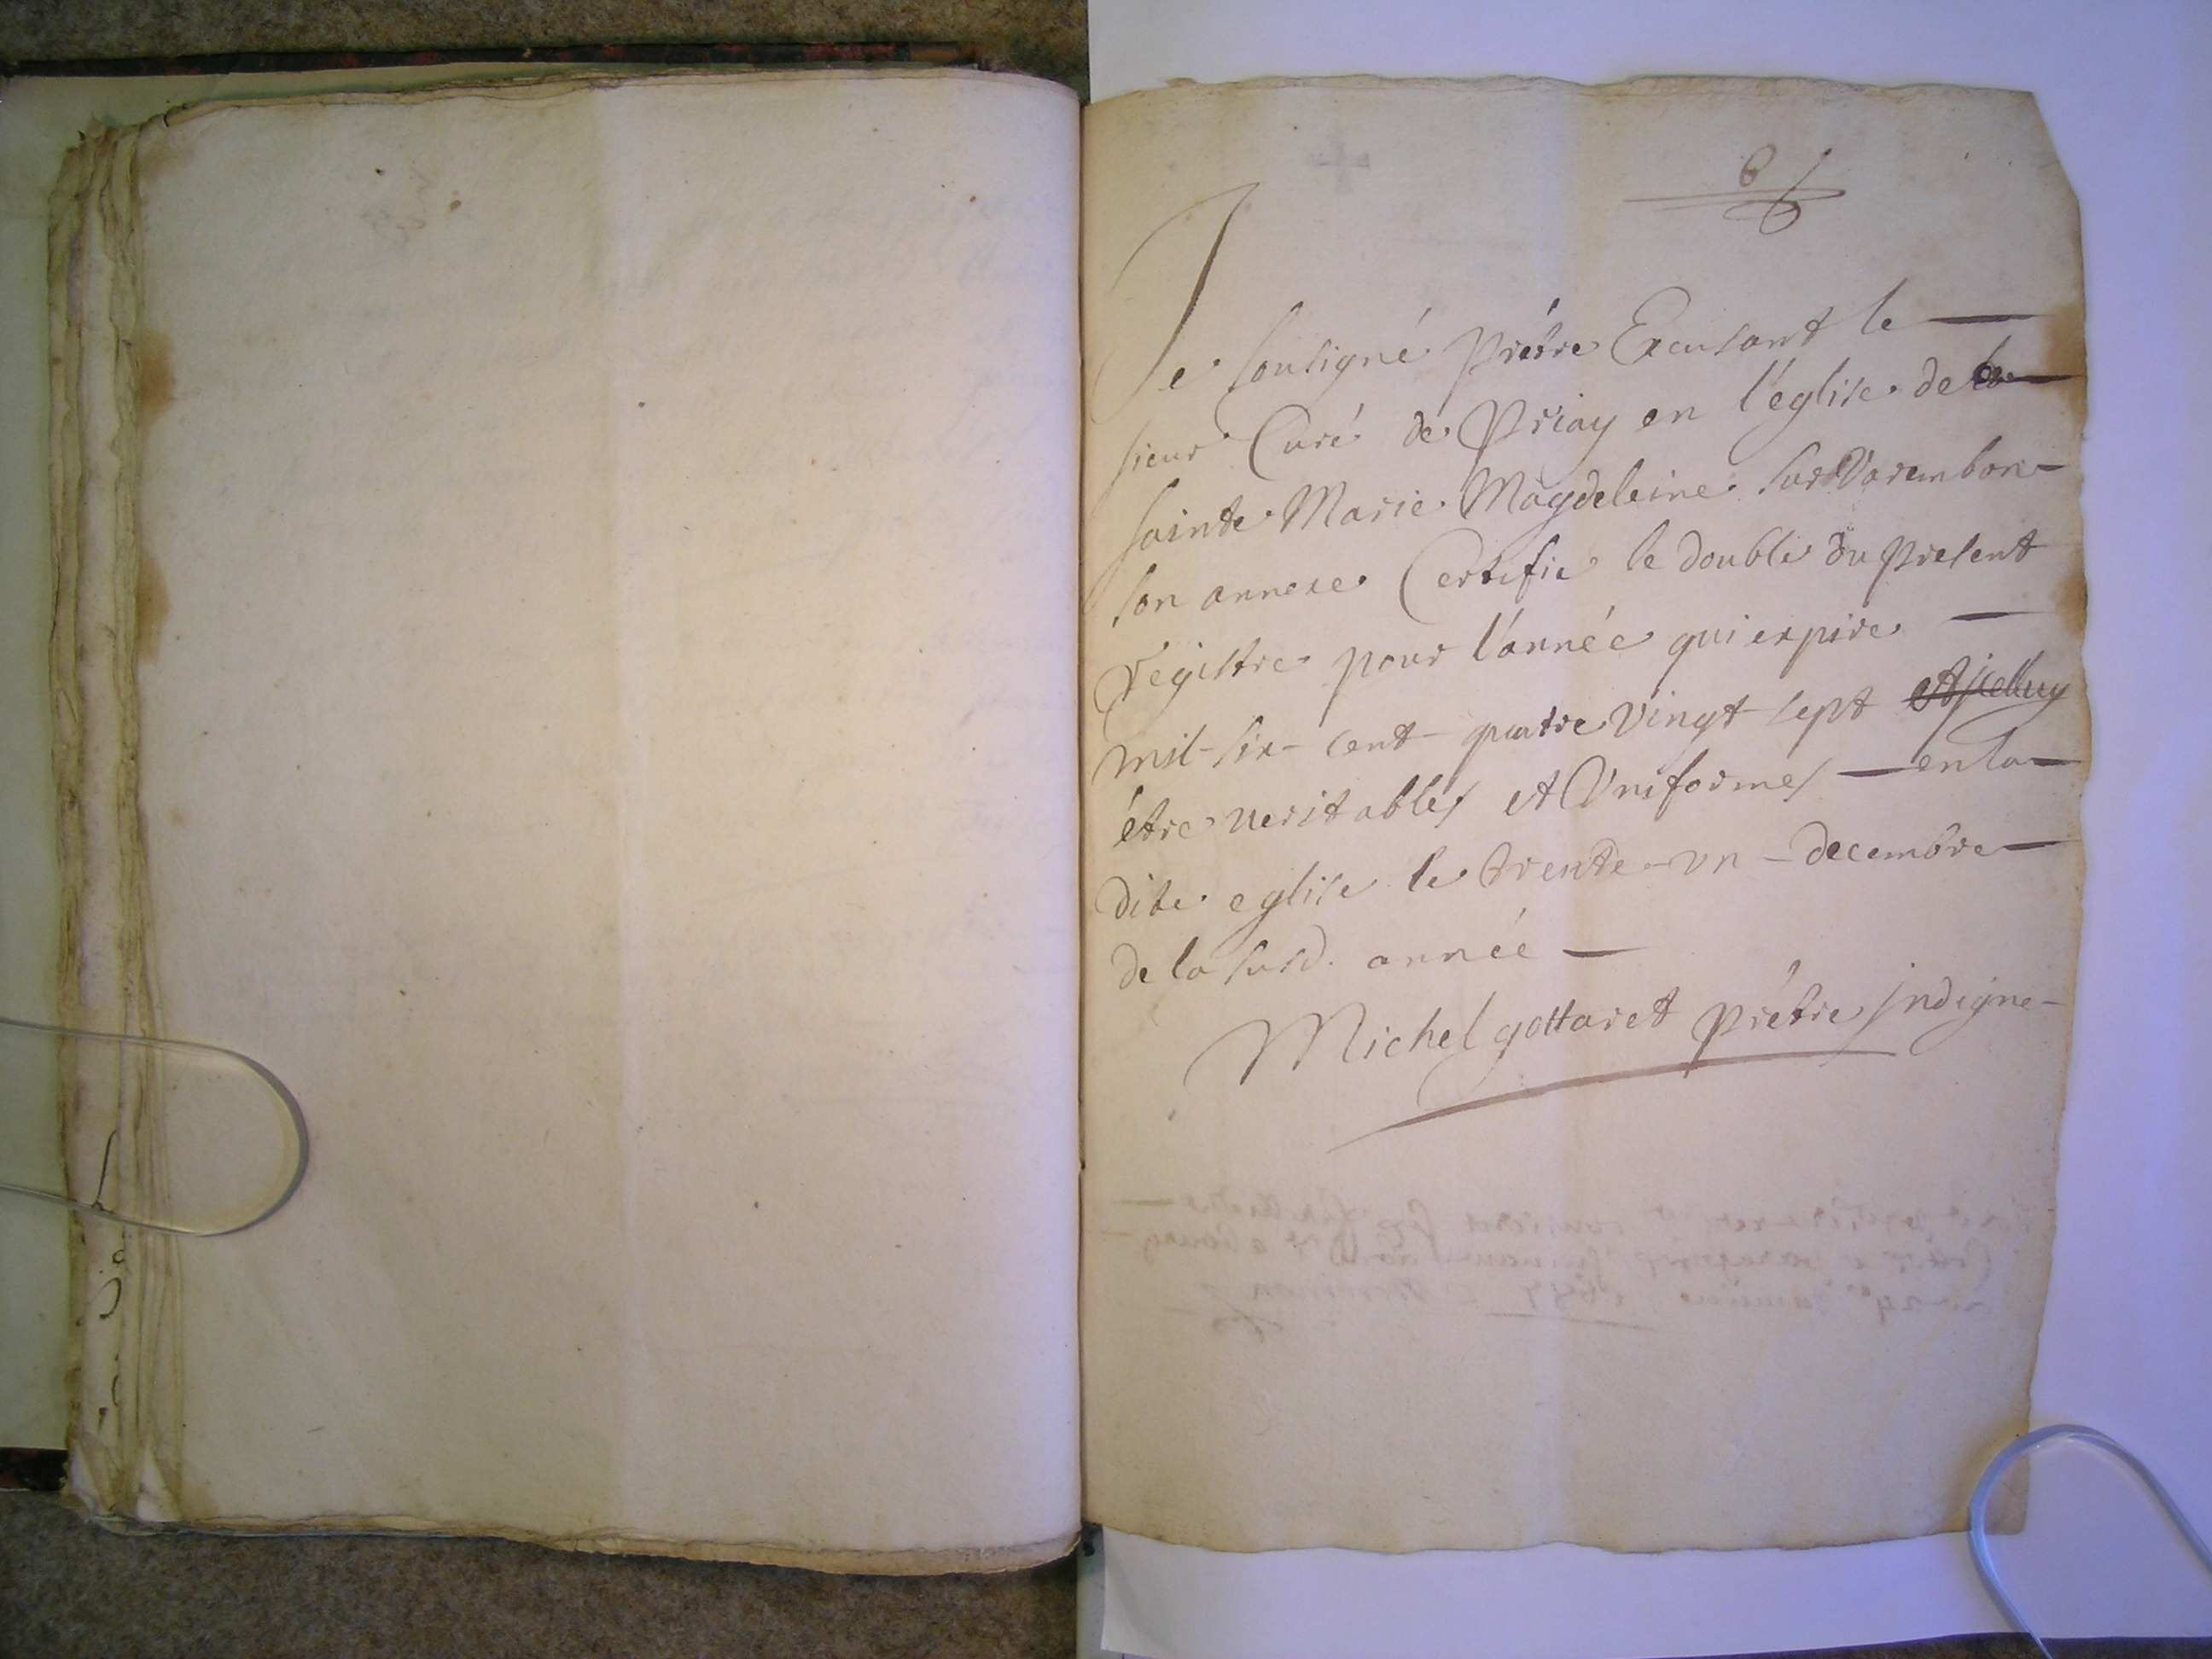 6
Je sousigné prétre Excusant le
sieur Curé de Priay en l'église de
sainte Marie Magdeleine sur Varembon
son annexe Certifie le double du present
régistre pour l'année qui expire
mil-six-cent-quatre vingt-sept et jcelluy
étre veritables et Vniformes en la
dite eglise le trente-vn-decembre
de la susd. année
Michel gottaret prétre jndigne